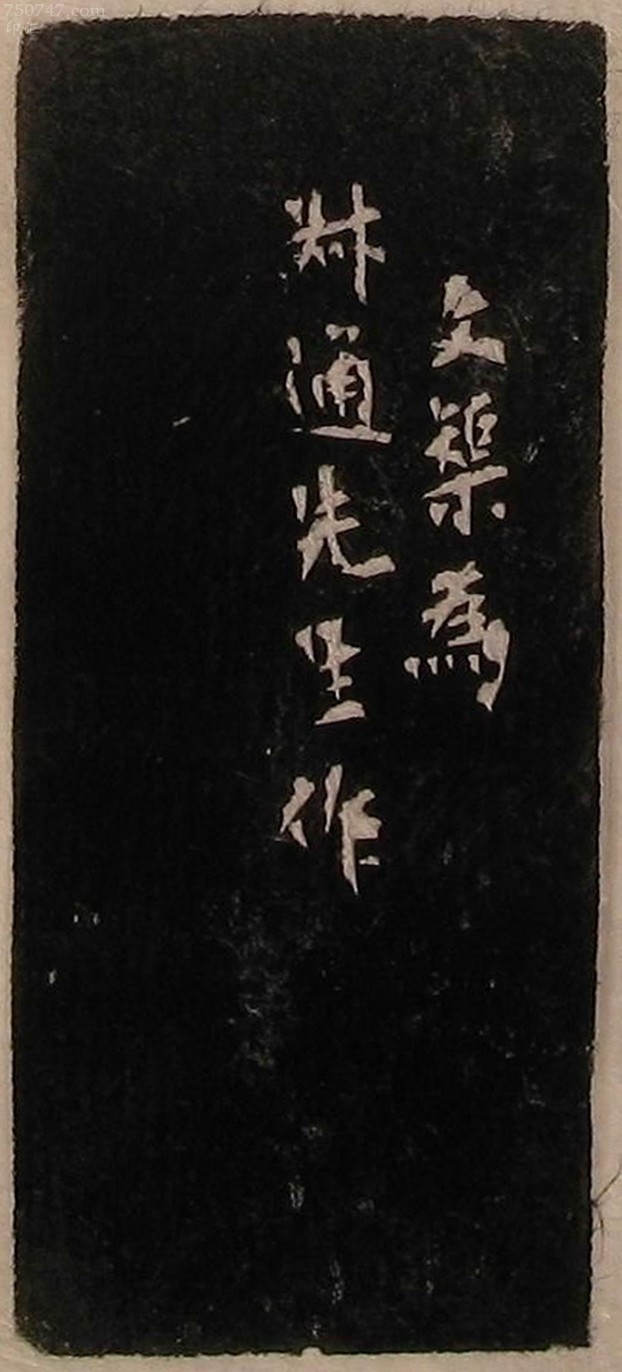 750747.com
文榘為
叔通先生作